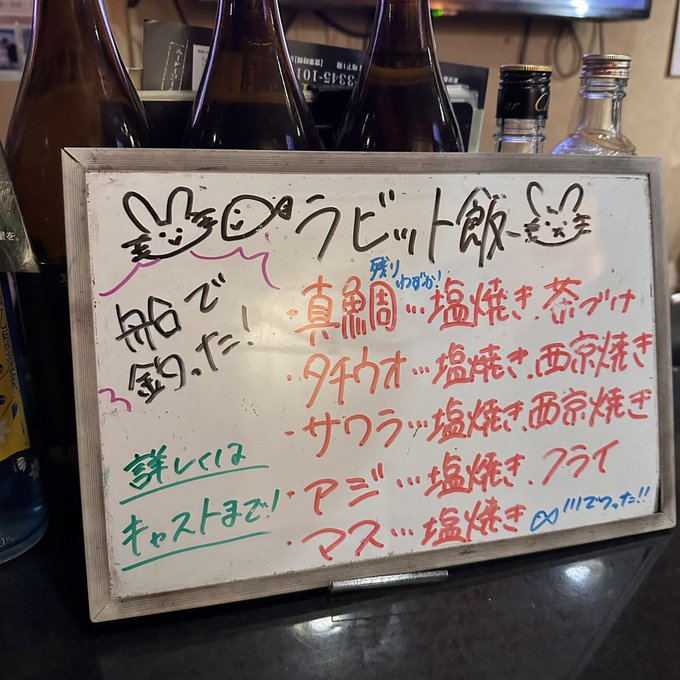 ラビット飯
船で
釣った!
残り
わずか!
・真鯛…塩焼き、茶づけ
・タチウオ…塩焼き、西京焼き
・サワラ…塩焼き、西京焼き
・アジ…塩焼き、フライ
・マス…塩焼き
でつった!!
詳しくは
キャストまで!
3345-101